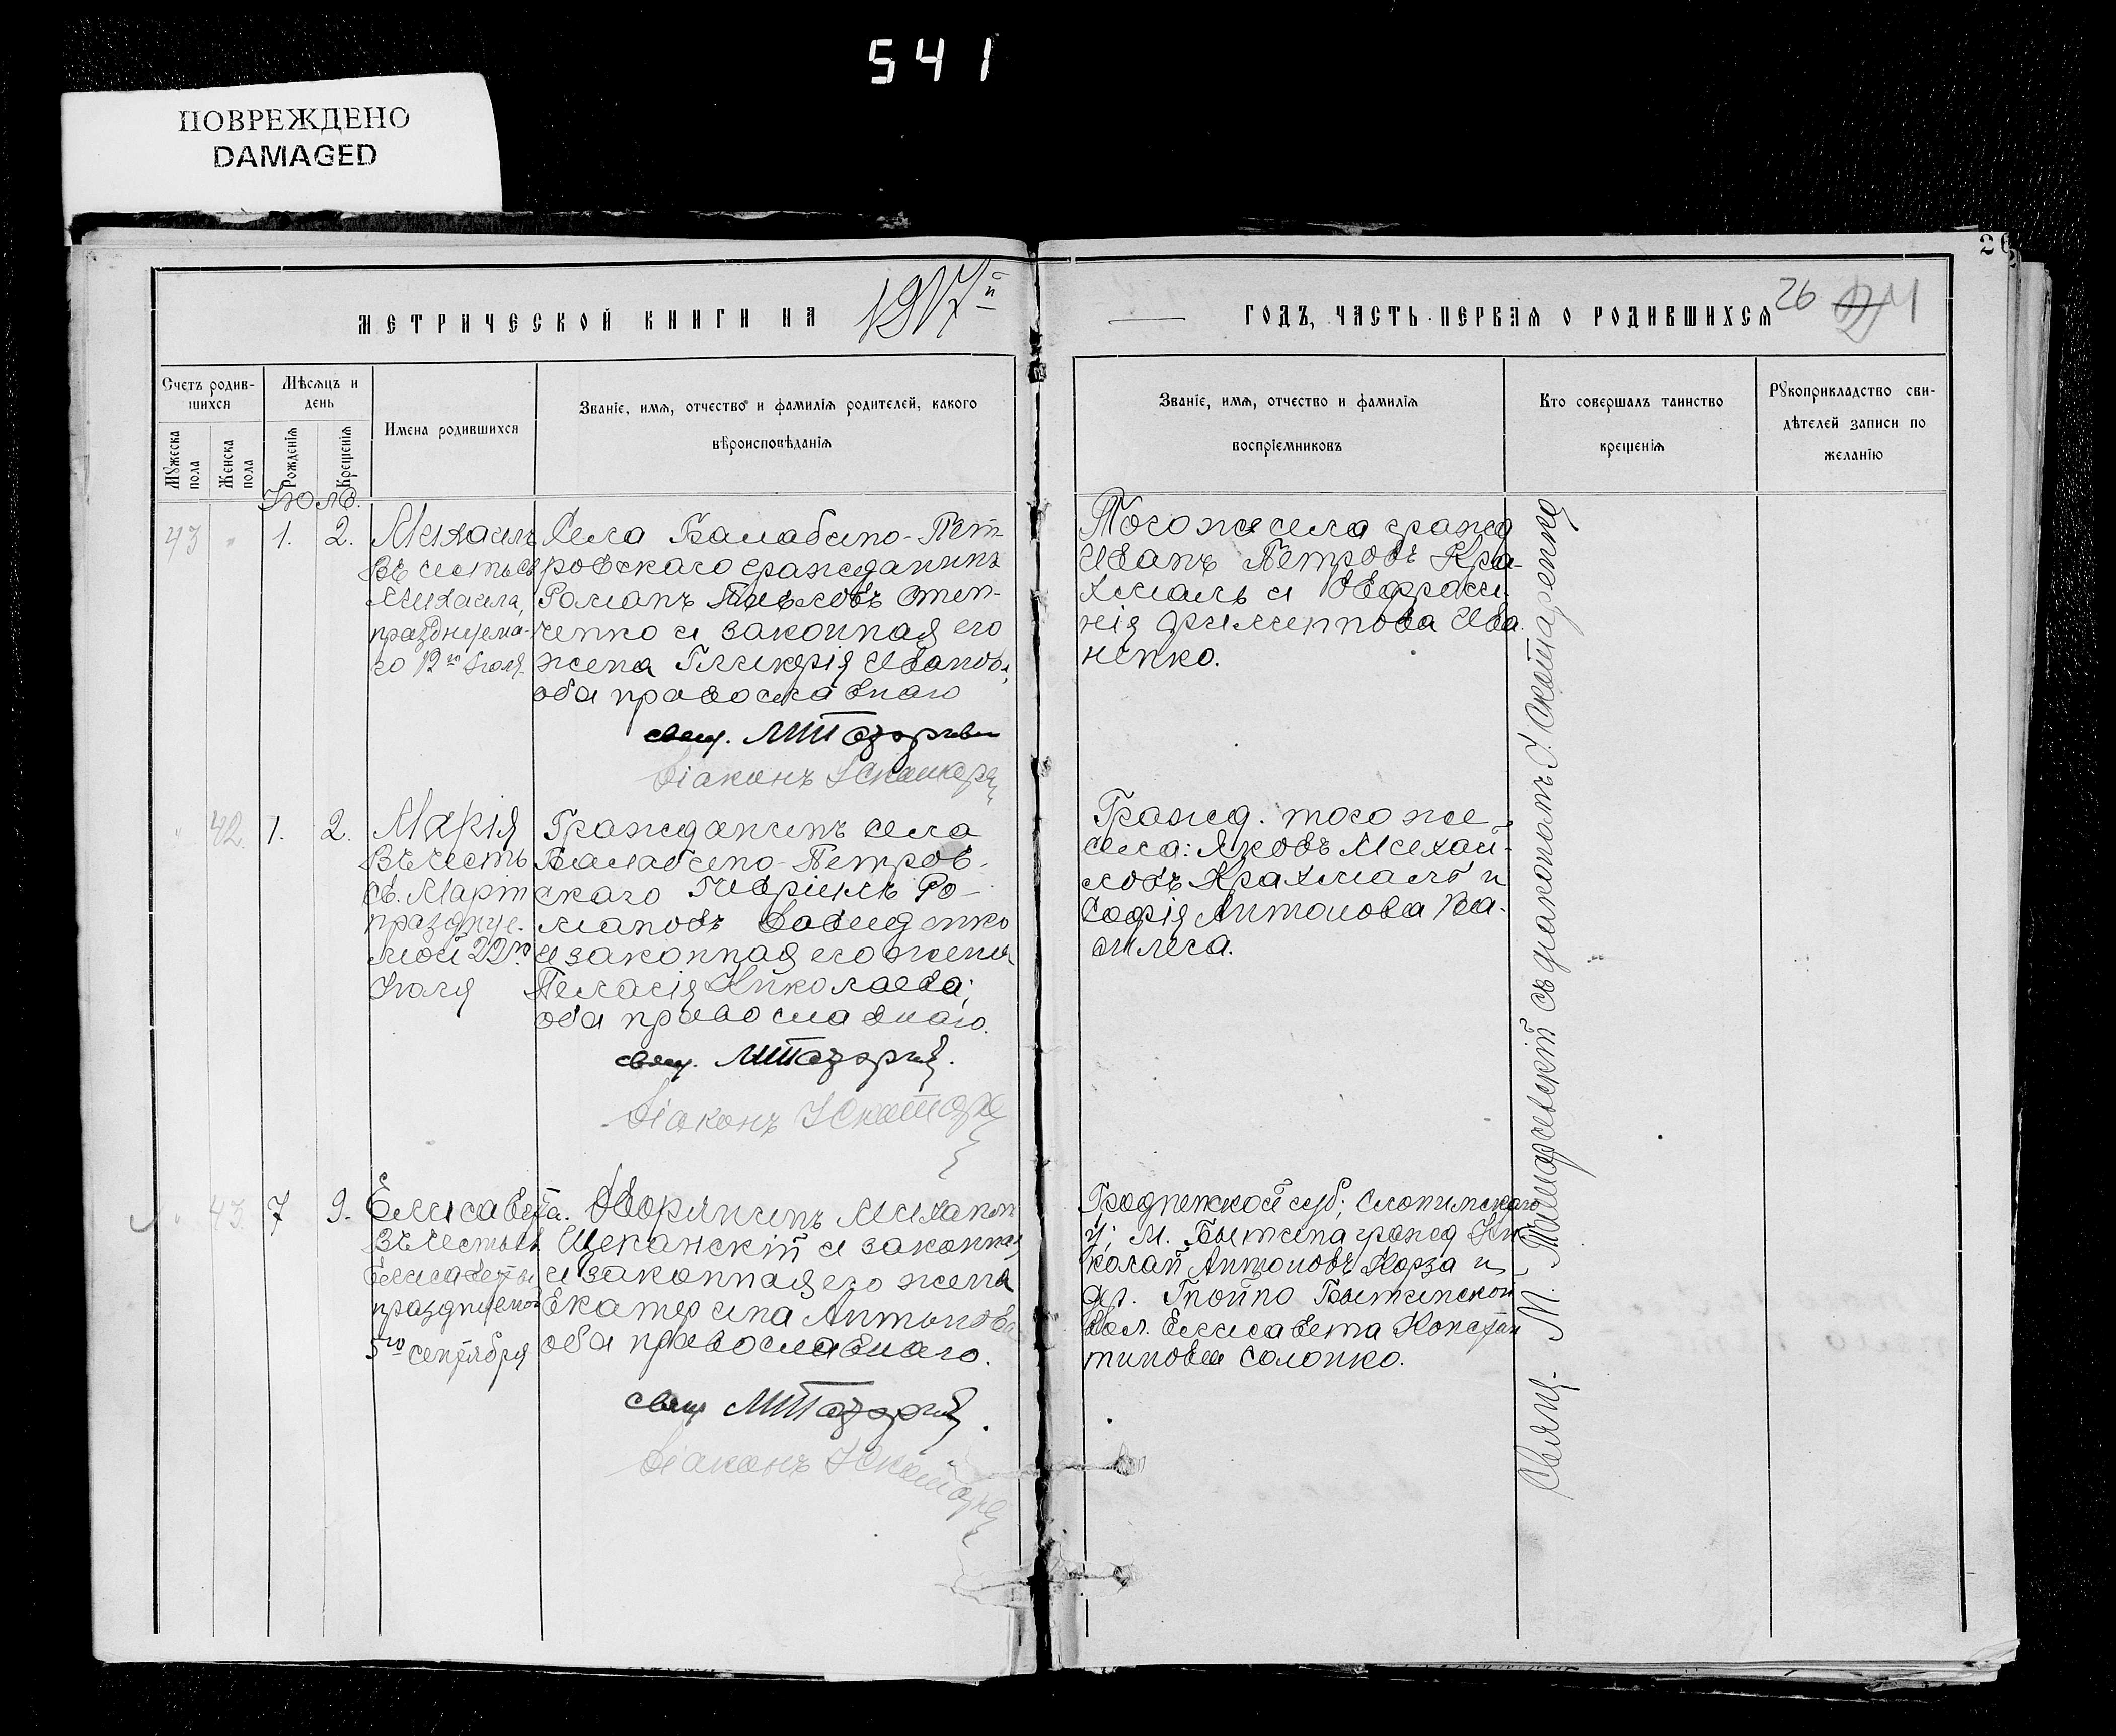 541
ПОВРЕЖДЕНО
DAMAGED
26
МЕТРИЧЕСКОЙ КНИГИ НА 1917й
ГОДЪ, ЧАСТЬ ПЕРВАЯ О РОДИВШИХСЯ
26
Счетъ родив-
шихся
Мужеска пола
Женска пола
Мѣсяцъ и
день
Рожденія
Крещенія
Имена родившихся
Званіе, имя, отчество и фамилія родителей, какого
вѣроисповѣданія
Званіе, имя, отчество и фамилія
воспріемниковъ
Кто совершалъ таинство
крещенія
Рукоприкладство сви-
дѣтелей записи по
желанію
Июль.
43 " 1. 2.
Михаилъ
въ честь св
Михаила,
празднуема-
го 12го Іюля.
Села Балабино-Пет-
ровскаго гражданинъ
Романъ Степ-
ченко и законная его
жена Гликерія Иванова,
оба православнаго
свящ.
Діаконъ
Того же села гражд
Иванъ Петровъ Кра-
хмаль и Ефроси-
нія Филиппова Ива
ненко.
" 42. 1. 2.
Марія
въ честь
св. Маріи
празднуе-
мой 22го
Іюля
Гражданинъ села
Балабино-Петров-
скаго Гавріилъ Ро-
мановъ Давиденко
и законная его жена
Пелагія Николаева;
оба православнаго.
свящ.
Діаконъ
Гражд. того же
села: Яковъ Михай-
ловъ Крахмаль и
Софія Антонова Ва-
" 43. 7 9.
Елисавета.
въ честь св
Елисаветы
празднуемой
5го сентября
Дворянинъ
и законная
и законная его жена
Екатерина Антонова
оба православнаго.
свящ
Діаконъ
Гродненской губ; Слонимскаго
у; м. Бытена гражд Ни
колай Антоновъ Корза и
др. Бытенской
вол. Елисавета Констан
тинова Солонко.
Свящ. М. съ діакономъ І.